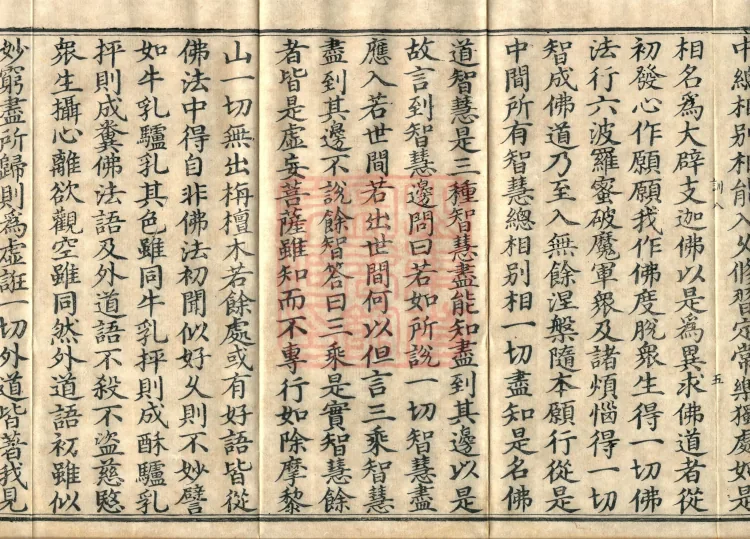 中總相别相能入久修習定常樂獨處如是
相名爲大辟支迦佛以是爲異求佛道者從
初發心作願願我作佛度脫衆生得一切佛
法行六波羅蜜破魔軍衆及諸煩惱得一切
智成佛道乃至入無餘涅槃隨本願行從是
中間所有智慧總相别相一切盡知是名佛
道智慧是三種智慧盡能知盡到其邊以是
故言到智慧邊問曰若如所說一切智慧盡
應入若世間若出世間何以但言三乘智慧
盡到其邊不說餘智答曰三乘是實智慧餘
者皆是虛妄菩薩雖知而不專行如除摩黎
山一切無出栴檀木若餘處或有好語皆從
佛法中得自非佛法初聞似好乆則不妙譬
如牛乳驢乳其色雖同牛乳抨則成酥驢乳
抨則成糞佛法語及外道語不殺不盗慈愍
衆生攝心離欲觀空雖同然外道語初雖似
妙窮盡所歸則爲虛誑一切外道皆著我見
訓八
五